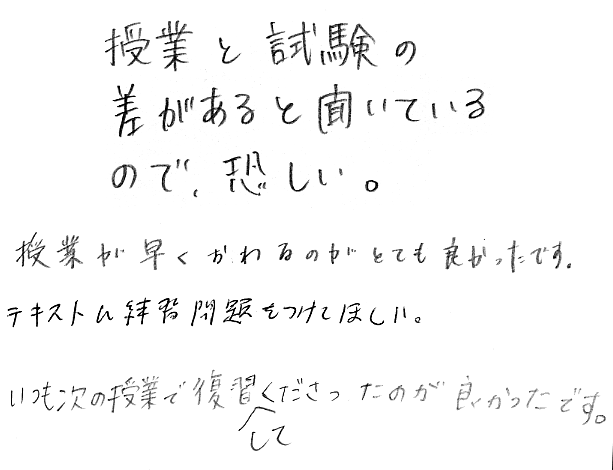 授業と試験の
差があると聞いている
ので、恐しい。
授業が早くかわるのがとても良かったです。
テキストに練習問題をつけてほしい。
いつも次の授業で復習してくださったのが良かったです。